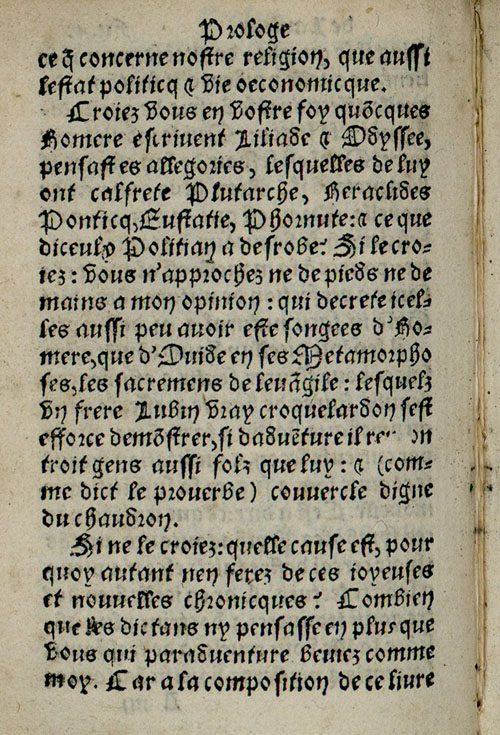 Prologe
ce q̃ concerne nostre religion, que aussi
lestat politicq ⁊ vie oeconomicque.
Croiez vous en vostre foy quõcques
Homere escrivent Liliade ⁊ Odyssee,
pensast es allegories, lesquelles de luy
ont calfrete Plutarche, Heraclides
Ponticq, Eustatie, Phornute: ⁊ ce que
diceulx Politian a desrobe? Si le cro-
iez: vous n'approchez ne de pieds ne de
mains a mon opinion: qui decrete icel-
les aussi peu avoir este songees d'Ho-
mere, que d'Ovide en ses Metamorpho
ses, les sacremens de levãgile: lesquelz
vn frere Lubin vray croquelardon sest
efforce demõstrer, si dadvẽture il re on
troit gens aussi folz que luy: ⁊ (com-
me dict le proverbe) couvercle digne
du chaudron.
Si ne le croiez: quelle cause est, pour
quoy autant nen ferez de ces ioyeuses
et nouvelles chronicques? Combien
que les dictans ny pensasse en plus que
vous qui paradventure beviez comme
moy. Car a la composition de ce livre